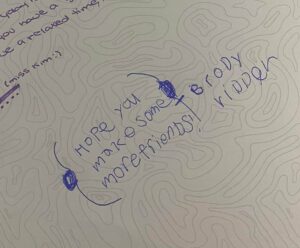 you have a
e a relaxed time
(miss Kim:)
Hope you
make some
more friends!
BRODY
RIDDER